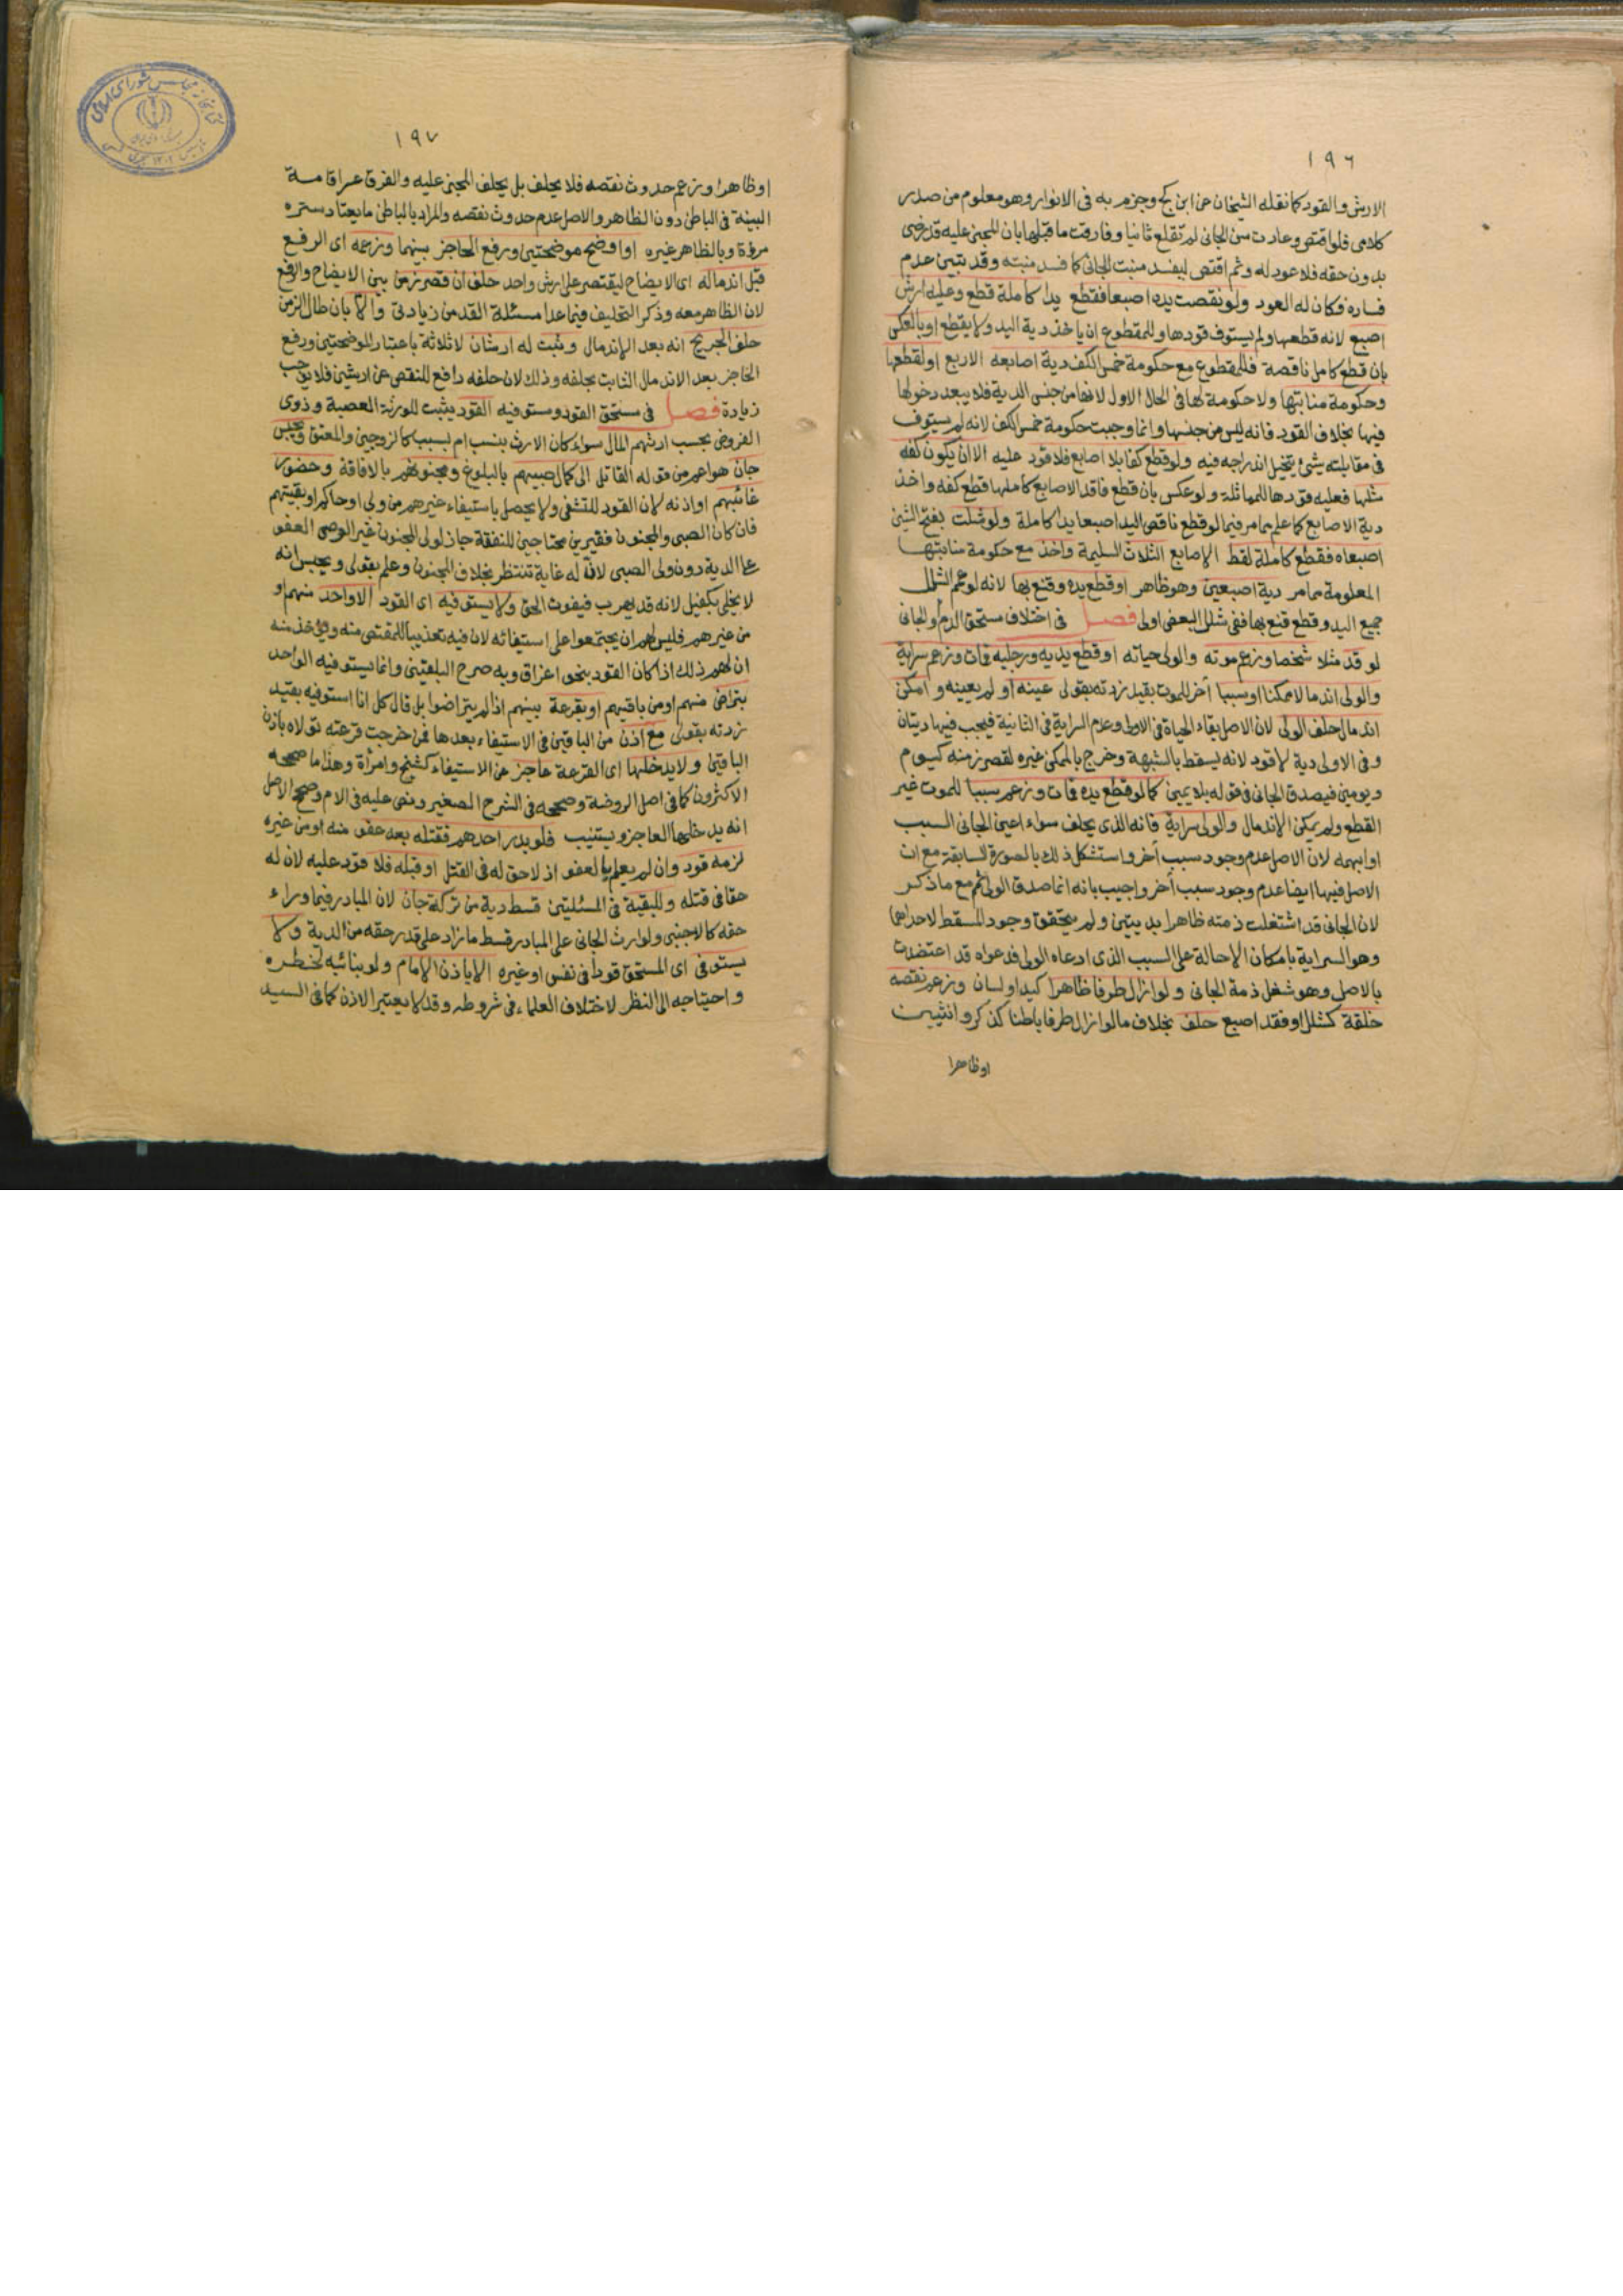 ١٩٦
الارش والقود كما نقله الشيخان عن ابن كج وجزم به فى الانوار وهو معلوم من صدر
كلامى فلو اقتص وعادت سن الجانى لم تقلع ثانيا وفارقت ما قبلها بان المجنى عليه قد رضى
بدون حقه فلا عود له وثم اقتص ليفسد منبت الجانى كما فسد منبته وقد تبين عدم
فساده فكان له العود ولو نقصت يده اصبعا فقطع يدا كاملة قطع وعليه ارش
اصبع لانه قطعها ولم يستوف قودها وللمقطوع ان ياخذ دية اليد ولا يقطع او بالعكس
بان قطع كامل ناقصة فللمقطوع مع حكومة خمس الكف دية اصابعه الاربع او لقطعها
وحكومة منابتها ولا حكومة لها فى الحال الاول لانها من جنس الدية فلا يبعد دخولها
فيها بخلاف القود فانه ليس من جنسها وانما وجبت حكومة خمس الكف لانه لم يستوف
فى مقابلته شئ يتخيل اندراجه فيه ولو قطع كفا بلا اصابع فلا قود عليه الا ان يكون كفه
مثلها فعليه قودها للمماثلة ولو عكس بان قطع فاقد الاصابع كاملها قطع كفه واخذ
دية الاصابع كما علم مما مر فيما لو قطع ناقص اليد اصبعا يدا كاملة ولو شلت بفتح الشين
اصبعاه فقطع كاملة لقط الاصابع الثلاث السليمة واخذ مع حكومة منابتها
المعلومة مما مر دية اصبعين وهو ظاهر او قطع يده وقنع بها لانه لو عم الشلل
جميع اليد وقطع قنع بها ففى شلل البعض اولى فصل فى اختلاف مستحق الدم والجانى
لو قد مثلا شخصا وزعم موته والولى حياته او قطع يديه ورجليه فمات وزعم سراية
والولى اندمالا ممكنا او سببا آخر للموت بقيد زدته بقولى عينه او لم يعينه وامكن
اندمال حلف الولى لان الاصل بقاء الحياة فى الاولى وعدم السراية فى الثانية فيجب فيها ديتان
وفى الاولى دية لا قود لانه يسقط بالشبهة وخرج بالممكن غيره لقصر زمنه كيوم
ويومين فيصدق الجانى فى قوله بلا يمين كما لو قطع يده فمات وزعم سببا للموت غير
القطع ولم يمكن الاندمال والولى سراية فانه الذى يحلف سواء اعين الجانى السبب
او ابهمه لان الاصل عدم وجود سبب آخر واستشكل ذلك بالصورة السابقة مع ان
الاصل فيها ايضا عدم وجود سبب آخر واجيب بانه انما صدق الولى ثم مع ما ذكر
لان الجانى قد اشتغلت ذمته ظاهرا بديتين ولم يتحقق وجود المسقط لاحداهما
وهو السراية بامكان الاحالة على السبب الذى ادعاه الولى فدعواه قد اعتضدت
بالاصل وهو شغل ذمة الجانى ولو ازال طرفا ظاهرا كيد او لسان وزعم نقصه
خلقة كشلل او فقد اصبع حلف بخلاف ما لو ازال طرفا باطنا كذكر وانثيين
او ظاهرا
١٩٧
او ظاهرا وزعم حدوث نقصه فلا يحلف بل يحلف المجنى عليه والفرق عسر اقامة
البينة فى الباطن دون الظاهر والاصل عدم حدوث نقصه والمراد بالباطن ما يعتاد ستره
مروة وبالظاهر غيره او اوضح موضحتين ورفع الحاجز بينهما وزعمه اى الرفع
قبل اندماله اى الايضاح ليقتصر على ارش واحد حلف ان قصر زمن بين الايضاح والرفع
لان الظاهر معه وذكر التحليف فيما عدا مسئلة القد من زيادتى والا بان طال الزمن
حلف الجريح انه بعد الاندمال وثبت له ارشان لا ثلاثة باعتبار الموضحتين ورفع
الحاجز بعد الاندمال الثابت بحلفه وذلك لان حلفه دافع للنقص عن ارشين فلا يوجب
زيادة فصل فى مستحق القود ومستوفيه القود يثبت للورثة العصبة وذوى
الفروض بحسب ارثهم المال سواء كان الارث بنسب ام بسبب كالزوجين والمعتق ويحبس
جان هو اعم من قوله القاتل الى كمال صبيهم بالبلوغ ومجنونهم بالافاقة وحضور
غائبهم او اذنه لان القود للتشفى ولا يحصل باستيفاء غيرهم من ولى او حاكم او بقيتهم
فان كان الصبى والمجنون فقيرين محتاجين للنفقة جاز لولى المجنون غير الوصى العفو
على الدية دون ولى الصبى لانه له غاية تنتظر بخلاف المجنون وعلم بقولى ويحبس انه
لا يخلى بكفيل لانه قد يهرب فيفوت الحق ولا يستوفيه اى القود الا واحد منهم او
من غيرهم فليس لهم ان يجتمعوا على استيفائه لان فيه تعذيبا للمقتص منه ويؤخذ منه
ان لهم ذلك اذا كان القود بنحو اغراق وبه صرح البلقينى وانما يستوفيه الواحد
بتراض منهم او من باقيهم او بقرعة بينهم اذا لم يتراضوا بل قال كل انا استوفيه بقيد
زدته بقولى مع اذن من الباقين فى الاستيفاء بعدها فمن خرجت قرعته تولاه باذن
الباقين ولا يدخلها اى القرعة عاجز عن الاستيفاء كشيخ وامرأة وهذا ما صححه
الاكثرون كما فى اصل الروضة وصححه فى الشرح الصغير ونص عليه فى الام وصحح الاصل
انه يدخلها العاجز ويستنيب فلو بدر احدهم فقتله بعد عفو منه او من غيره
لزمه قود وان لم يعلم بالعفو اذ لا حق له فى القتل او قبله فلا قود عليه لان له
حقا فى قتله وللبقية فى المسئلتين قسط دية من تركة جان لان المبادر فيما وراء
حقه كالاجنبى ولوارث الجانى على المبادر قسط ما زاد على قدر حقه من الدية ولا
يستوفى اى المستحق قودا فى نفس او غيره الا باذن الامام ولو بنائبه لخطره
واحتياجه الى النظر لاختلاف العلماء فى شروطه وقد لا يعتبر الاذن كما فى السيد